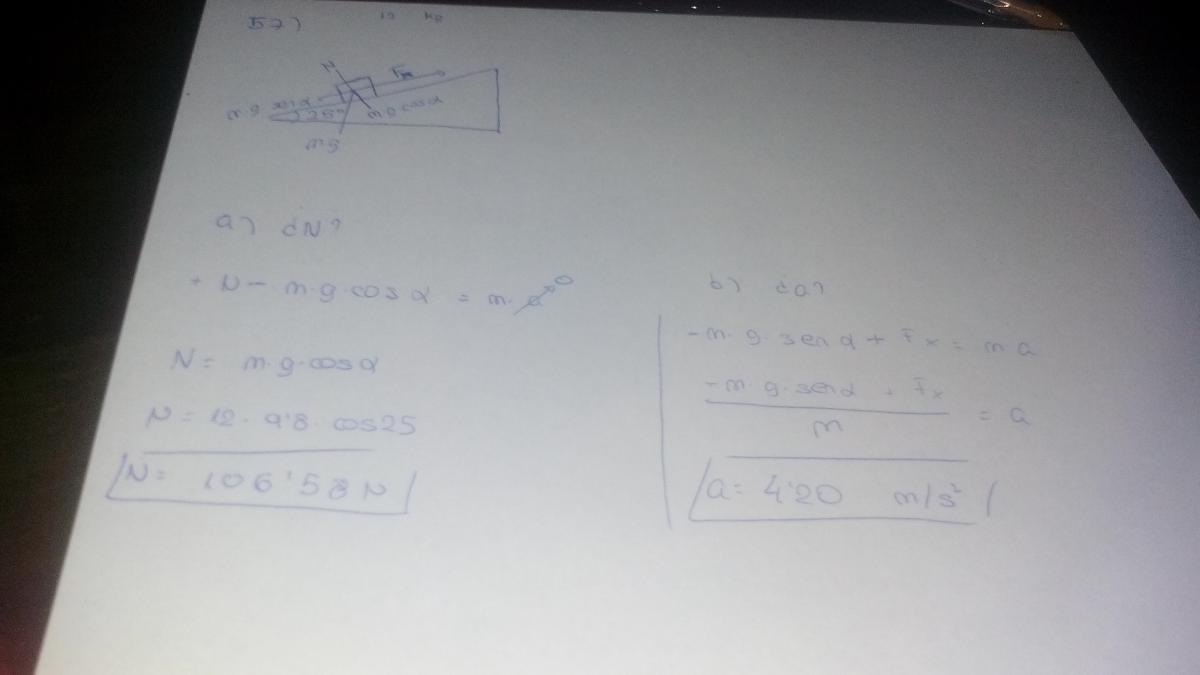 57)
12 kg
N
Fx
m·g senα
25º
m·g cosα
m·g
a) ¿N?
+ N - m·g·cosα = m·a 0
N = m·g·cosα
N = 12·9'8·cos25
N = 106'58 N
b) ¿a?
-m·g·senα + Fx = m a
-m·g·senα + Fx
= a
m
a = 4'20 m/s²